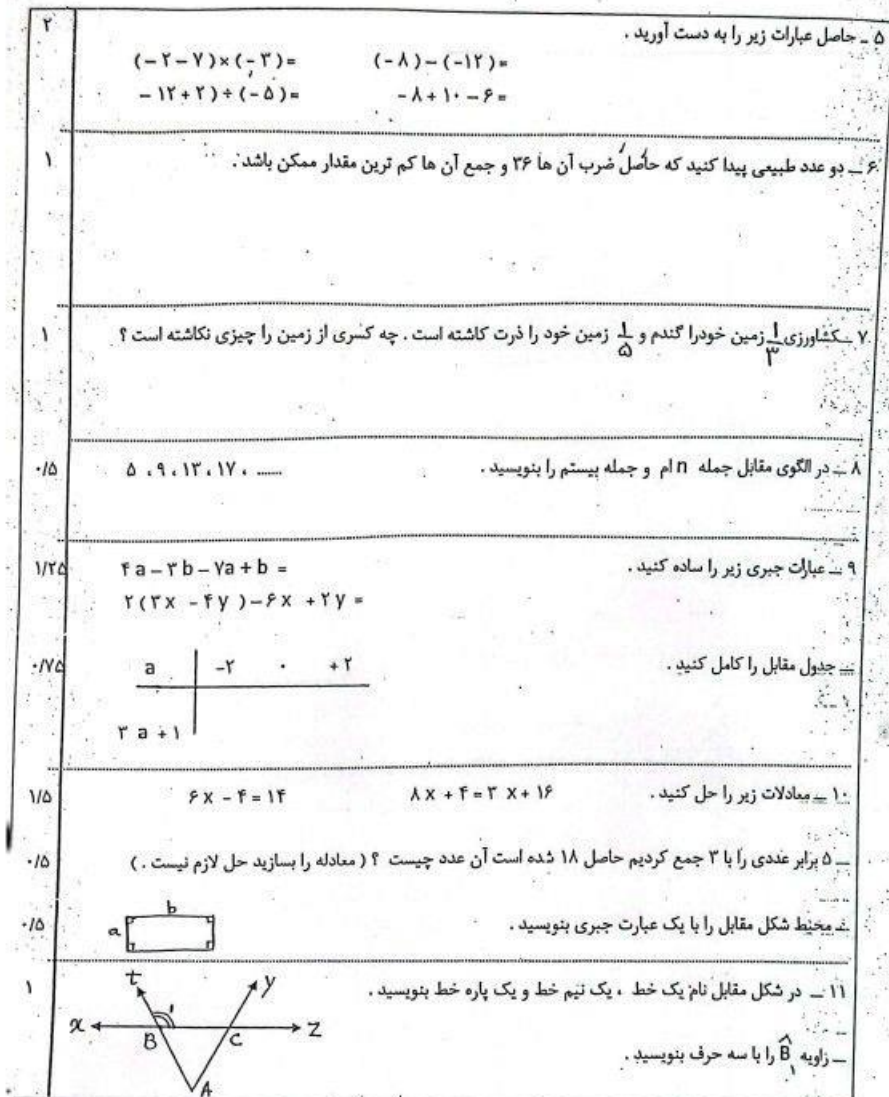 ۵ ـ حاصل عبارات زیر را به دست آورید . ۲
(- ۲ - ۷) × (- ۳) = (- ۸) - (- ۱۲) =
- ۱۲ + ۲) ÷ (- ۵) = - ۸ + ۱۰ - ۶ =
۶ ـ دو عدد طبیعی پیدا کنید که حاصل ضرب آن ها ۳۶ و جمع آن ها کم ترین مقدار ممکن باشد . ۱
۷ ـ کشاورزی ۱/۳ زمین خودرا گندم و ۱/۵ زمین خود را ذرت کاشته است . چه کسری از زمین را چیزی نکاشته است ؟ ۱
۸ ـ در الگوی مقابل جمله n ام و جمله بیستم را بنویسید . ۵ ، ۹ ، ۱۳ ، ۱۷ ، ...... ۰/۵
۹ ـ عبارات جبری زیر را ساده کنید . ۴a - ۳b - ۷a + b = ۱/۲۵
۲(۳x - ۴y) - ۶x + ۲y =
ـ جدول مقابل را کامل کنید . a -۲ ۰ +۲ ۰/۷۵
۳a + ۱
۱۰ ـ معادلات زیر را حل کنید . ۸x + ۴ = ۳x + ۱۶ ۶x - ۴ = ۱۴ ۱/۵
ـ ۵ برابر عددی را با ۳ جمع کردیم حاصل ۱۸ شده است آن عدد چیست ؟ ( معادله را بسازید حل لازم نیست . ) ۰/۵
ـ محیط شکل مقابل را با یک عبارت جبری بنویسید . a b ۰/۵
۱۱ ـ در شکل مقابل نام یک خط ، یک نیم خط و یک پاره خط بنویسید . ۱
t y
x B ۱ C z
A
ـ زاویه B̂۱ را با سه حرف بنویسید .